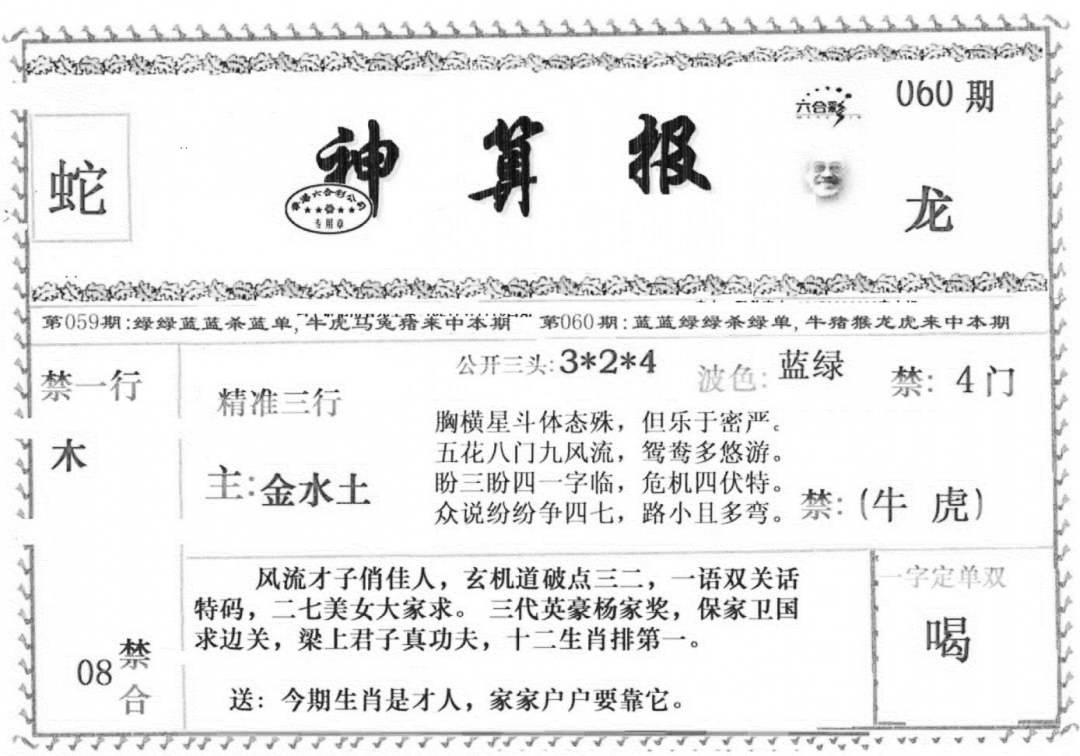 060 期
六合彩
蛇
神算报
香港六合彩公司
专用章
龙
第059期:绿绿蓝蓝杀蓝单,牛虎马兔猪来中本期 第060期:蓝蓝绿绿杀绿单,牛猪猴龙虎来中本期
禁一行
木
精准三行
主:金水土
公开三头:3*2*4
波色:蓝绿
禁: 4门
胸横星斗体态殊，但乐于密严。
五花八门九风流，鸳鸯多悠游。
盼三盼四一字临，危机四伏特。
众说纷纷争四七，路小且多弯。
禁:(牛 虎)
08 禁合
风流才子俏佳人，玄机道破点三二，一语双关话
特码，二七美女大家求。 三代英豪杨家奖，保家卫国
求边关，梁上君子真功夫，十二生肖排第一。
送：今期生肖是才人，家家户户要靠它。
一字定单双
喝